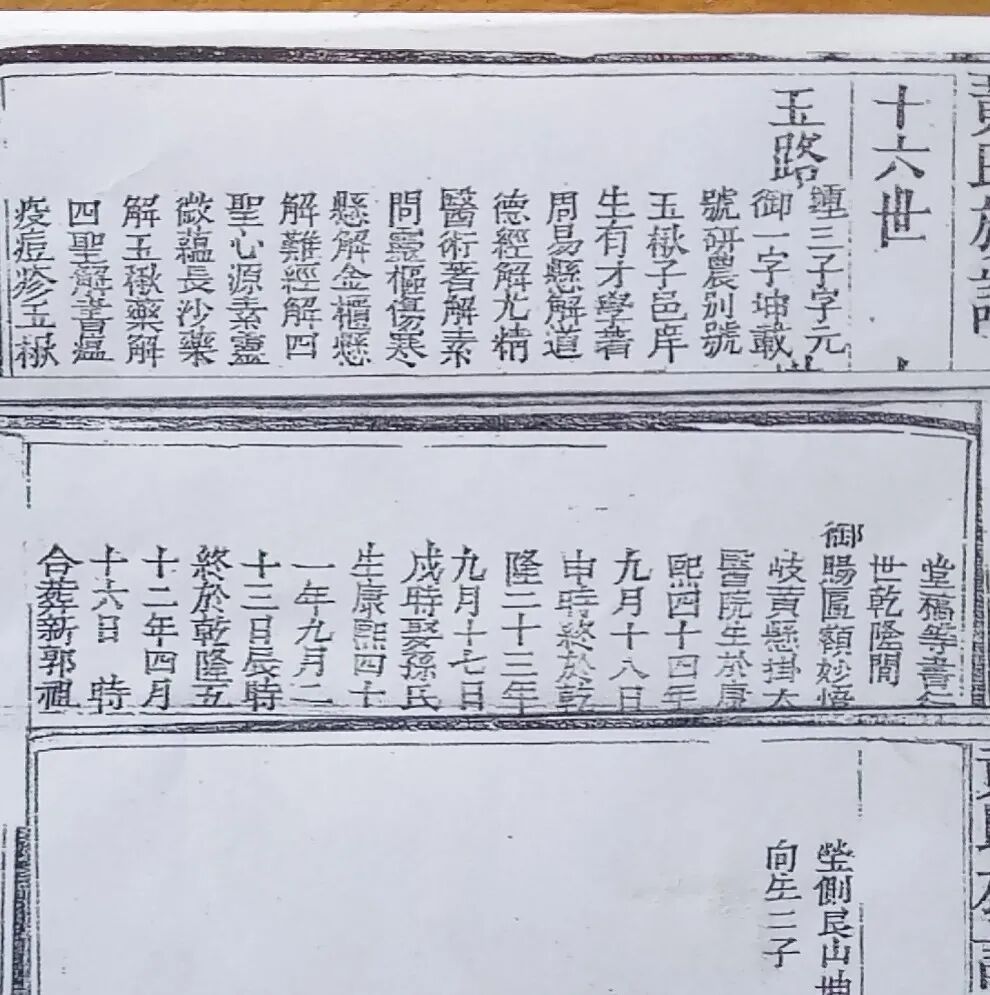 黃氏族譜
十六世
玉路
鍾三子字元
御一字坤載
號研農別號
玉楸子邑庠
生有才學著
周易懸解道
德經解尤精
醫術著解素
問靈樞傷寒
懸解金櫃懸
解難經解四
聖心源素靈
微蘊長沙藥
解玉楸藥解
四聖解書瘟
疫痘疹玉楸
堂稿等書行
世乾隆間
御賜匾額妙悟
岐黃懸掛太
醫院生於康
熙四十四年
九月十八日
申時終於乾
隆二十三年
九月十七日
戌時娶孫氏
生康熙四十
一年九月二
十三日辰時
終於乾隆五
十二年四月
十六日 時
合葬新郭祖
黃氏族譜
塋側艮山坤
向生三子